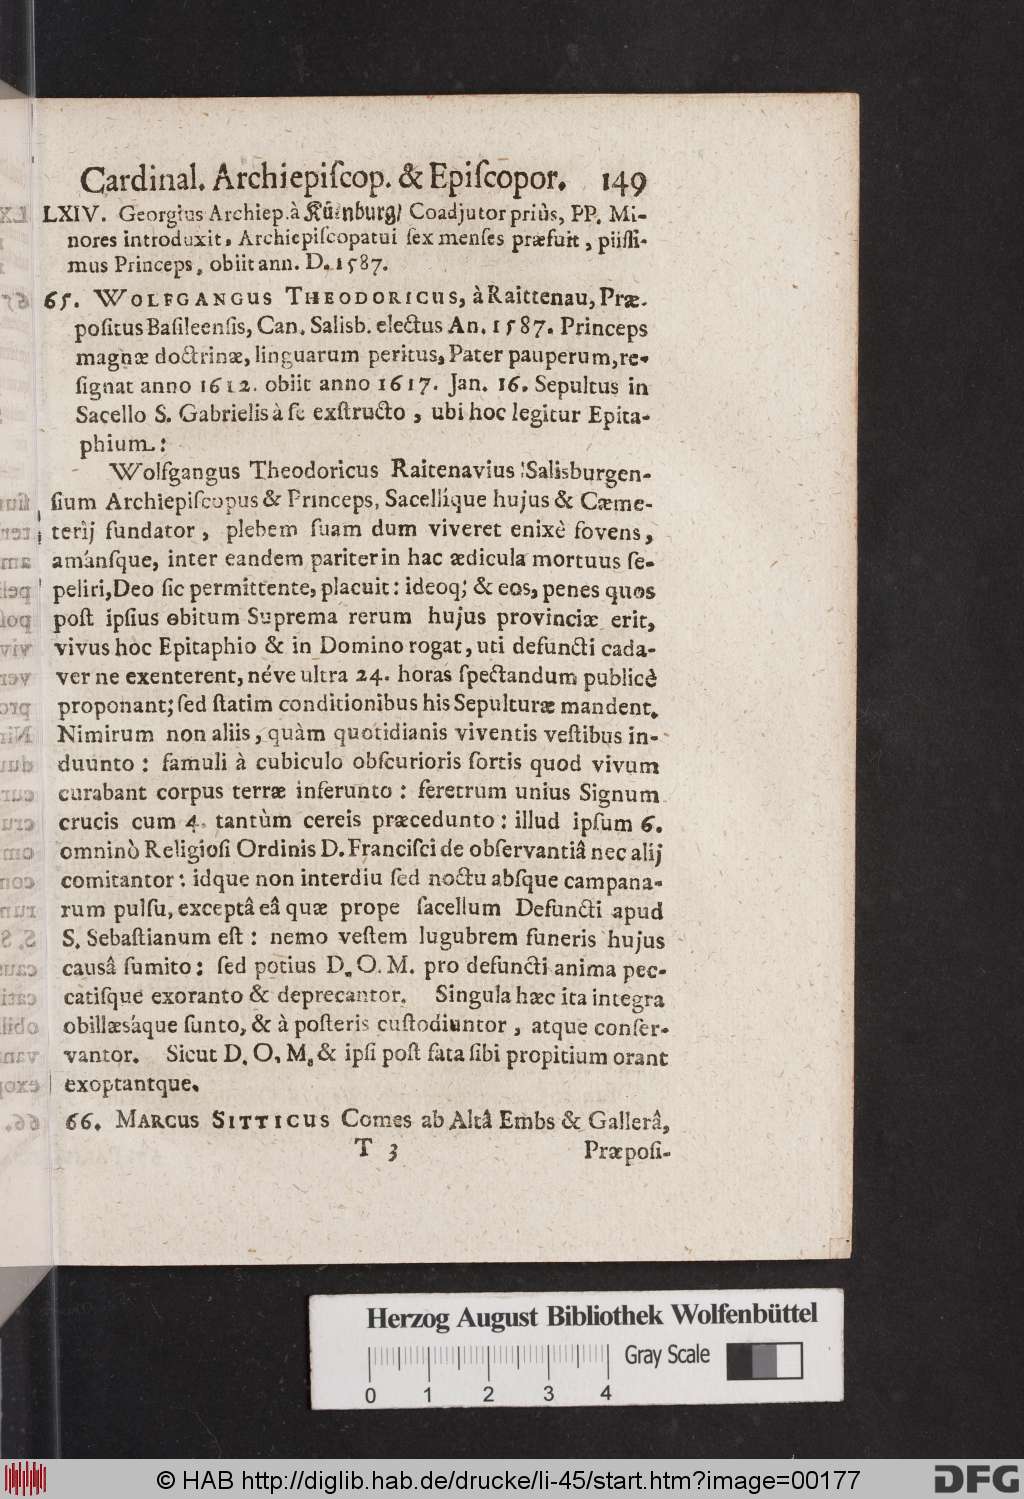 Cardinal. Archiepiſcop. & Epiſcopor. 149
LXIV. Georgius Archiep. à Küenburg/ Coadjutor priùs, PP. Mi-
nores introduxit, Archiepiſcopatui ſex menſes præfuit, piiſſi-
mus Princeps, obiit ann. D. 1587.
65. WOLFGANGUS THEODORICUS, à Raittenau, Præ-
poſitus Baſileenſis, Can. Salisb. electus An. 1587. Princeps
magnæ doctrinæ, linguarum peritus, Pater pauperum, re-
ſignat anno 1612. obiit anno 1617. Jan. 16. Sepultus in
Sacello S. Gabrielis à ſe exſtructo, ubi hoc legitur Epita-
phium:
Wolfgangus Theodoricus Raitenavius Salisburgen-
ſium Archiepiſcopus & Princeps, Sacellíque hujus & Cæme-
terij fundator, plebem ſuam dum viveret enixè fovens,
amánſque, inter eandem pariter in hac ædicula mortuus ſe-
peliri, Deo ſic permittente, placuit: ideoq; & eos, penes quos
poſt ipſius obitum Suprema rerum hujus provinciæ erit,
vivus hoc Epitaphio & in Domino rogat, uti defuncti cada-
ver ne exenterent, néve ultra 24. horas ſpectandum publicè
proponant; ſed ſtatim conditionibus his Sepulturæ mandent.
Nimirum non aliis, quàm quotidianis viventis veſtibus in-
duunto: famuli à cubiculo obſcurioris ſortis quod vivum
curabant corpus terræ inferunto: feretrum unius Signum
crucis cum 4. tantùm cereis præcedunto: illud ipſum 6.
omninò Religioſi Ordinis D. Franciſci de obſervantiâ nec alij
comitantor: idque non interdiu ſed noctu abſque campana-
rum pulſu, exceptâ eâ quæ prope ſacellum Defuncti apud
S. Sebaſtianum eſt: nemo veſtem lugubrem funeris hujus
causâ ſumito: ſed potius D. O. M. pro defuncti anima pec-
catiſque exoranto & deprecantor. Singula hæc ita integra
obillæsáque ſunto, & à poſteris cuſtodiuntor, atque conſer-
vantor. Sicut D. O. M. & ipſi poſt fata ſibi propitium orant
exoptantque.
66. MARCUS SITTICUS Comes ab Altâ Embs & Gallerâ,
T 3 Præpoſi-
Herzog August Bibliothek Wolfenbüttel
Gray Scale
0 1 2 3 4
© HAB http://diglib.hab.de/drucke/li-45/start.htm?image=00177
DFG